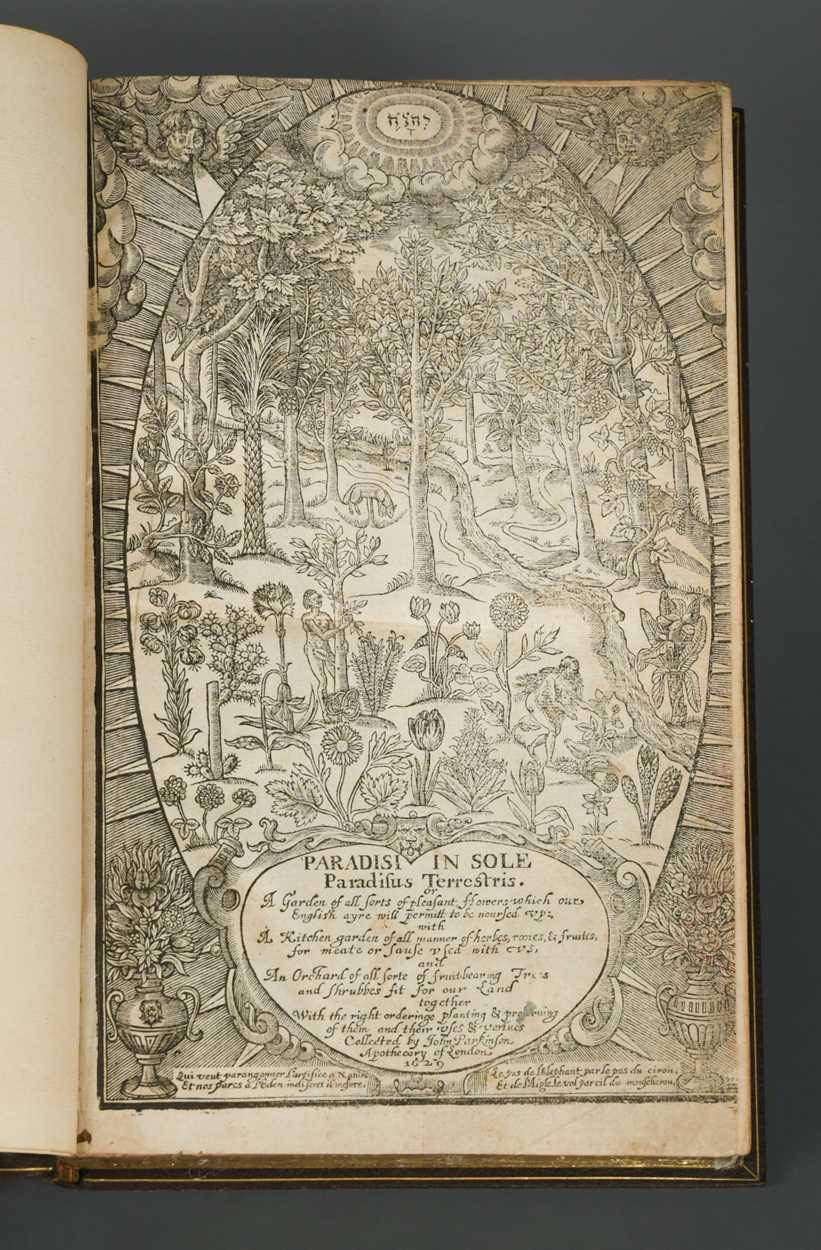 יהוה
PARADISI IN SOLE
Paradisus Terrestris.
or
A Garden of all sorts of pleasant flowers which our
English ayre will permitt to be noursed vp:
with
A Kitchen garden of all manner of herbes, rootes, & fruites,
for meate or sause vsed with vs,
and
An Orchard of all sorte of fruitbearing Trees
and shrubbes fit for our Land
together
With the right orderinge planting & preserving
of them and their vses & vertues
Collected by John Parkinson
Apothecary of London
1629
Qui veut parangonner l'artifice a Nature
Et nos parcs a l'Eden indiscret il mesure,
Le pas de l'Elephant par le pas du ciron,
Et de l'Aigle le vol par cil du moucheron.